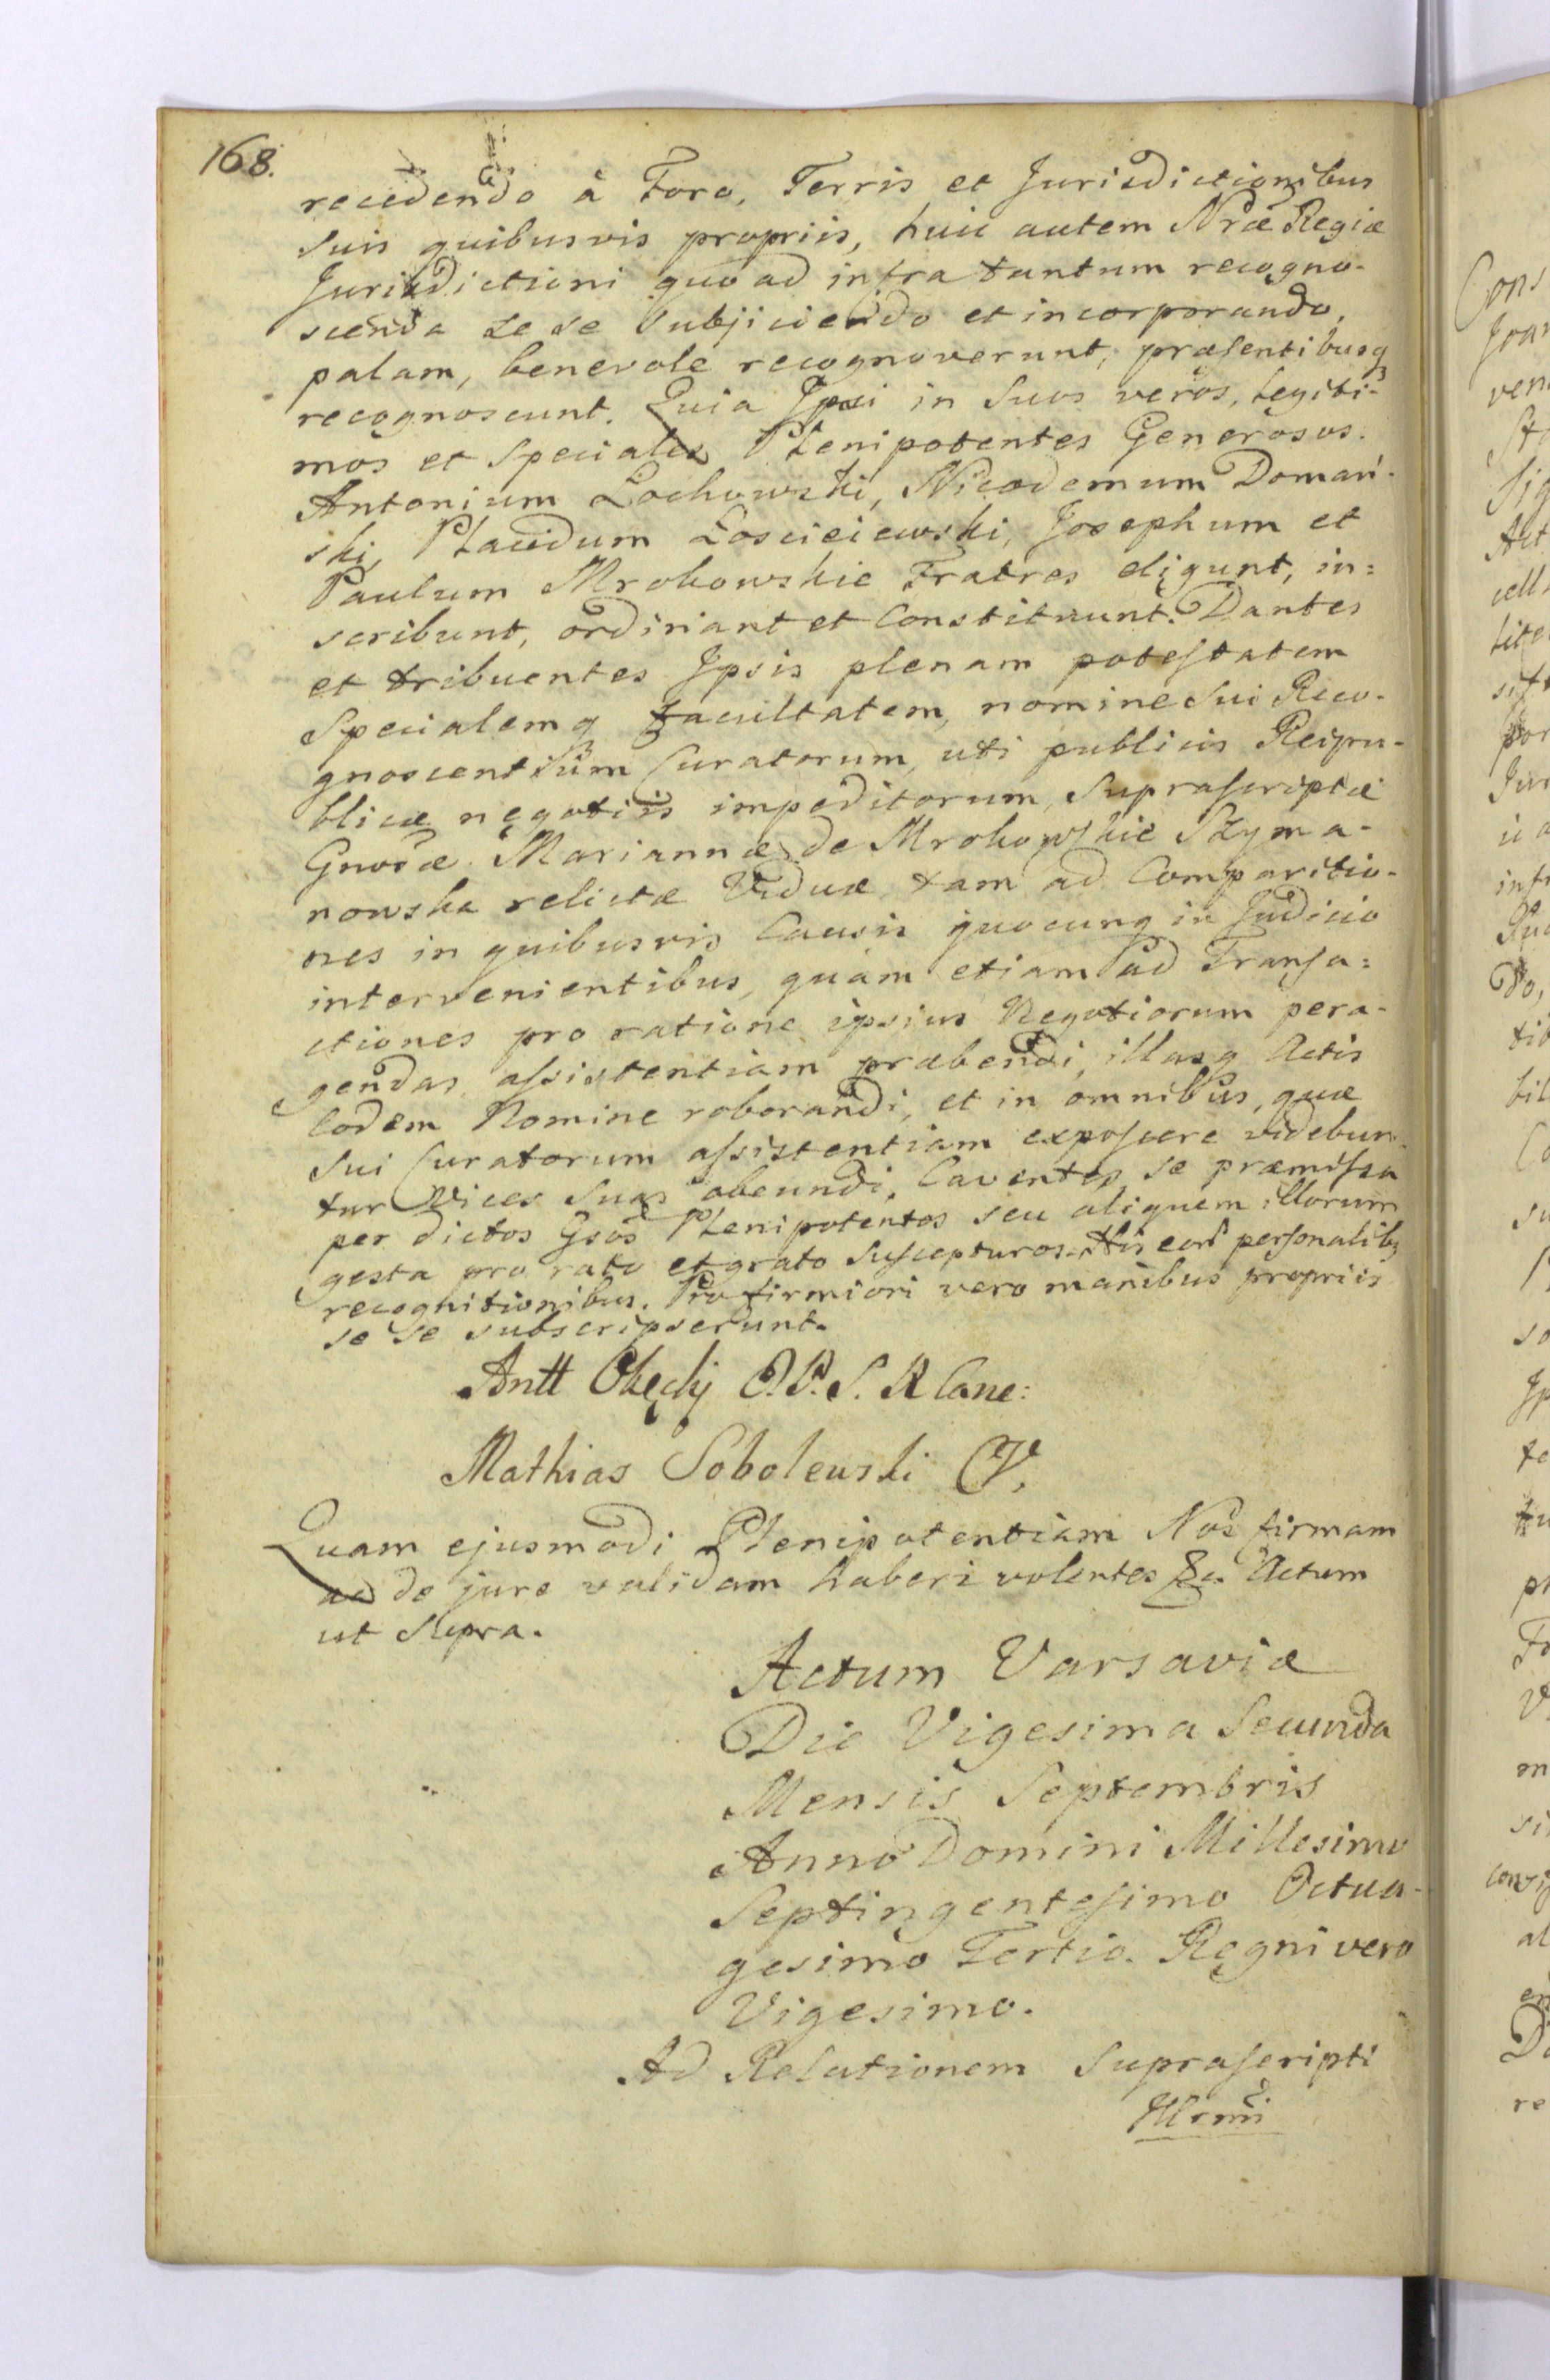 168.
recedendo à Foro, Terris et Jurisdictionibus
suis quibusvis propriis, huic autem Nræ Regiæ
Jurisdictioni quo ad infra tantum recogno-
scenda se se subjiciendo et incorporando,
palam, benevole recognoverunt, præsentibusq
recognoscunt. Quia Ipsi in suos veros, legiti-
mos et speciales Plenipotentes Generosos.
Antonium Lochowski, Nicodemum Domań-
ski, Placidum Łosciciewski, Josephum et
Paulum Mrokowskie Fratres eligunt, in=
scribunt, ordinant et Constituunt. Dantes
et tribuentes Ipsis plenam potestatem
Specialemq facultatem, nomine sui Reco-
gnoscentium Curatorum, uti publicis Reipu-
blicæ negotiis impeditorum, Suprascriptæ
Gnosæ Mariannæ de Mrokowskie Szyma-
nowska relictæ Viduæ tam ad Comparitio-
nes in quibusvis Causis quocunq in Judicio
intervenientibus, quam etiam ad Transa=
ctiones pro ratione ipsius Negotiorum pera-
gendas, assistentiam præbendi, illasq Actis
Eodem Nomine roborandi, et in omnibus, quæ
sui Curatorum assistentiam exposcere videbun-
tur vices suas obeundi. Caventes se præmissa
per dictos Gsos Plenipotentes seu aliquem illorum
gesta pro rato et grato suscepturos. His eor personalibq
recognitionibus. Pro firmiori vero manibus propriis
se se subscripserunt.
Antt Okęcki
Mathias Sobolewski
Quam ejusmodi Plenipotentiam Nos firmam
ac de jure validam haberi volentes &c. Actum
ut supra.
Actum Varsaviæ
Die Vigesima Secunda
Mensis Septembris
Anno Domini Millesimo
Septingentesimo Octua-
gesimo Tertio. Regni vero
Vigesimo.
Ad Relationem Suprascripti
Illrmi